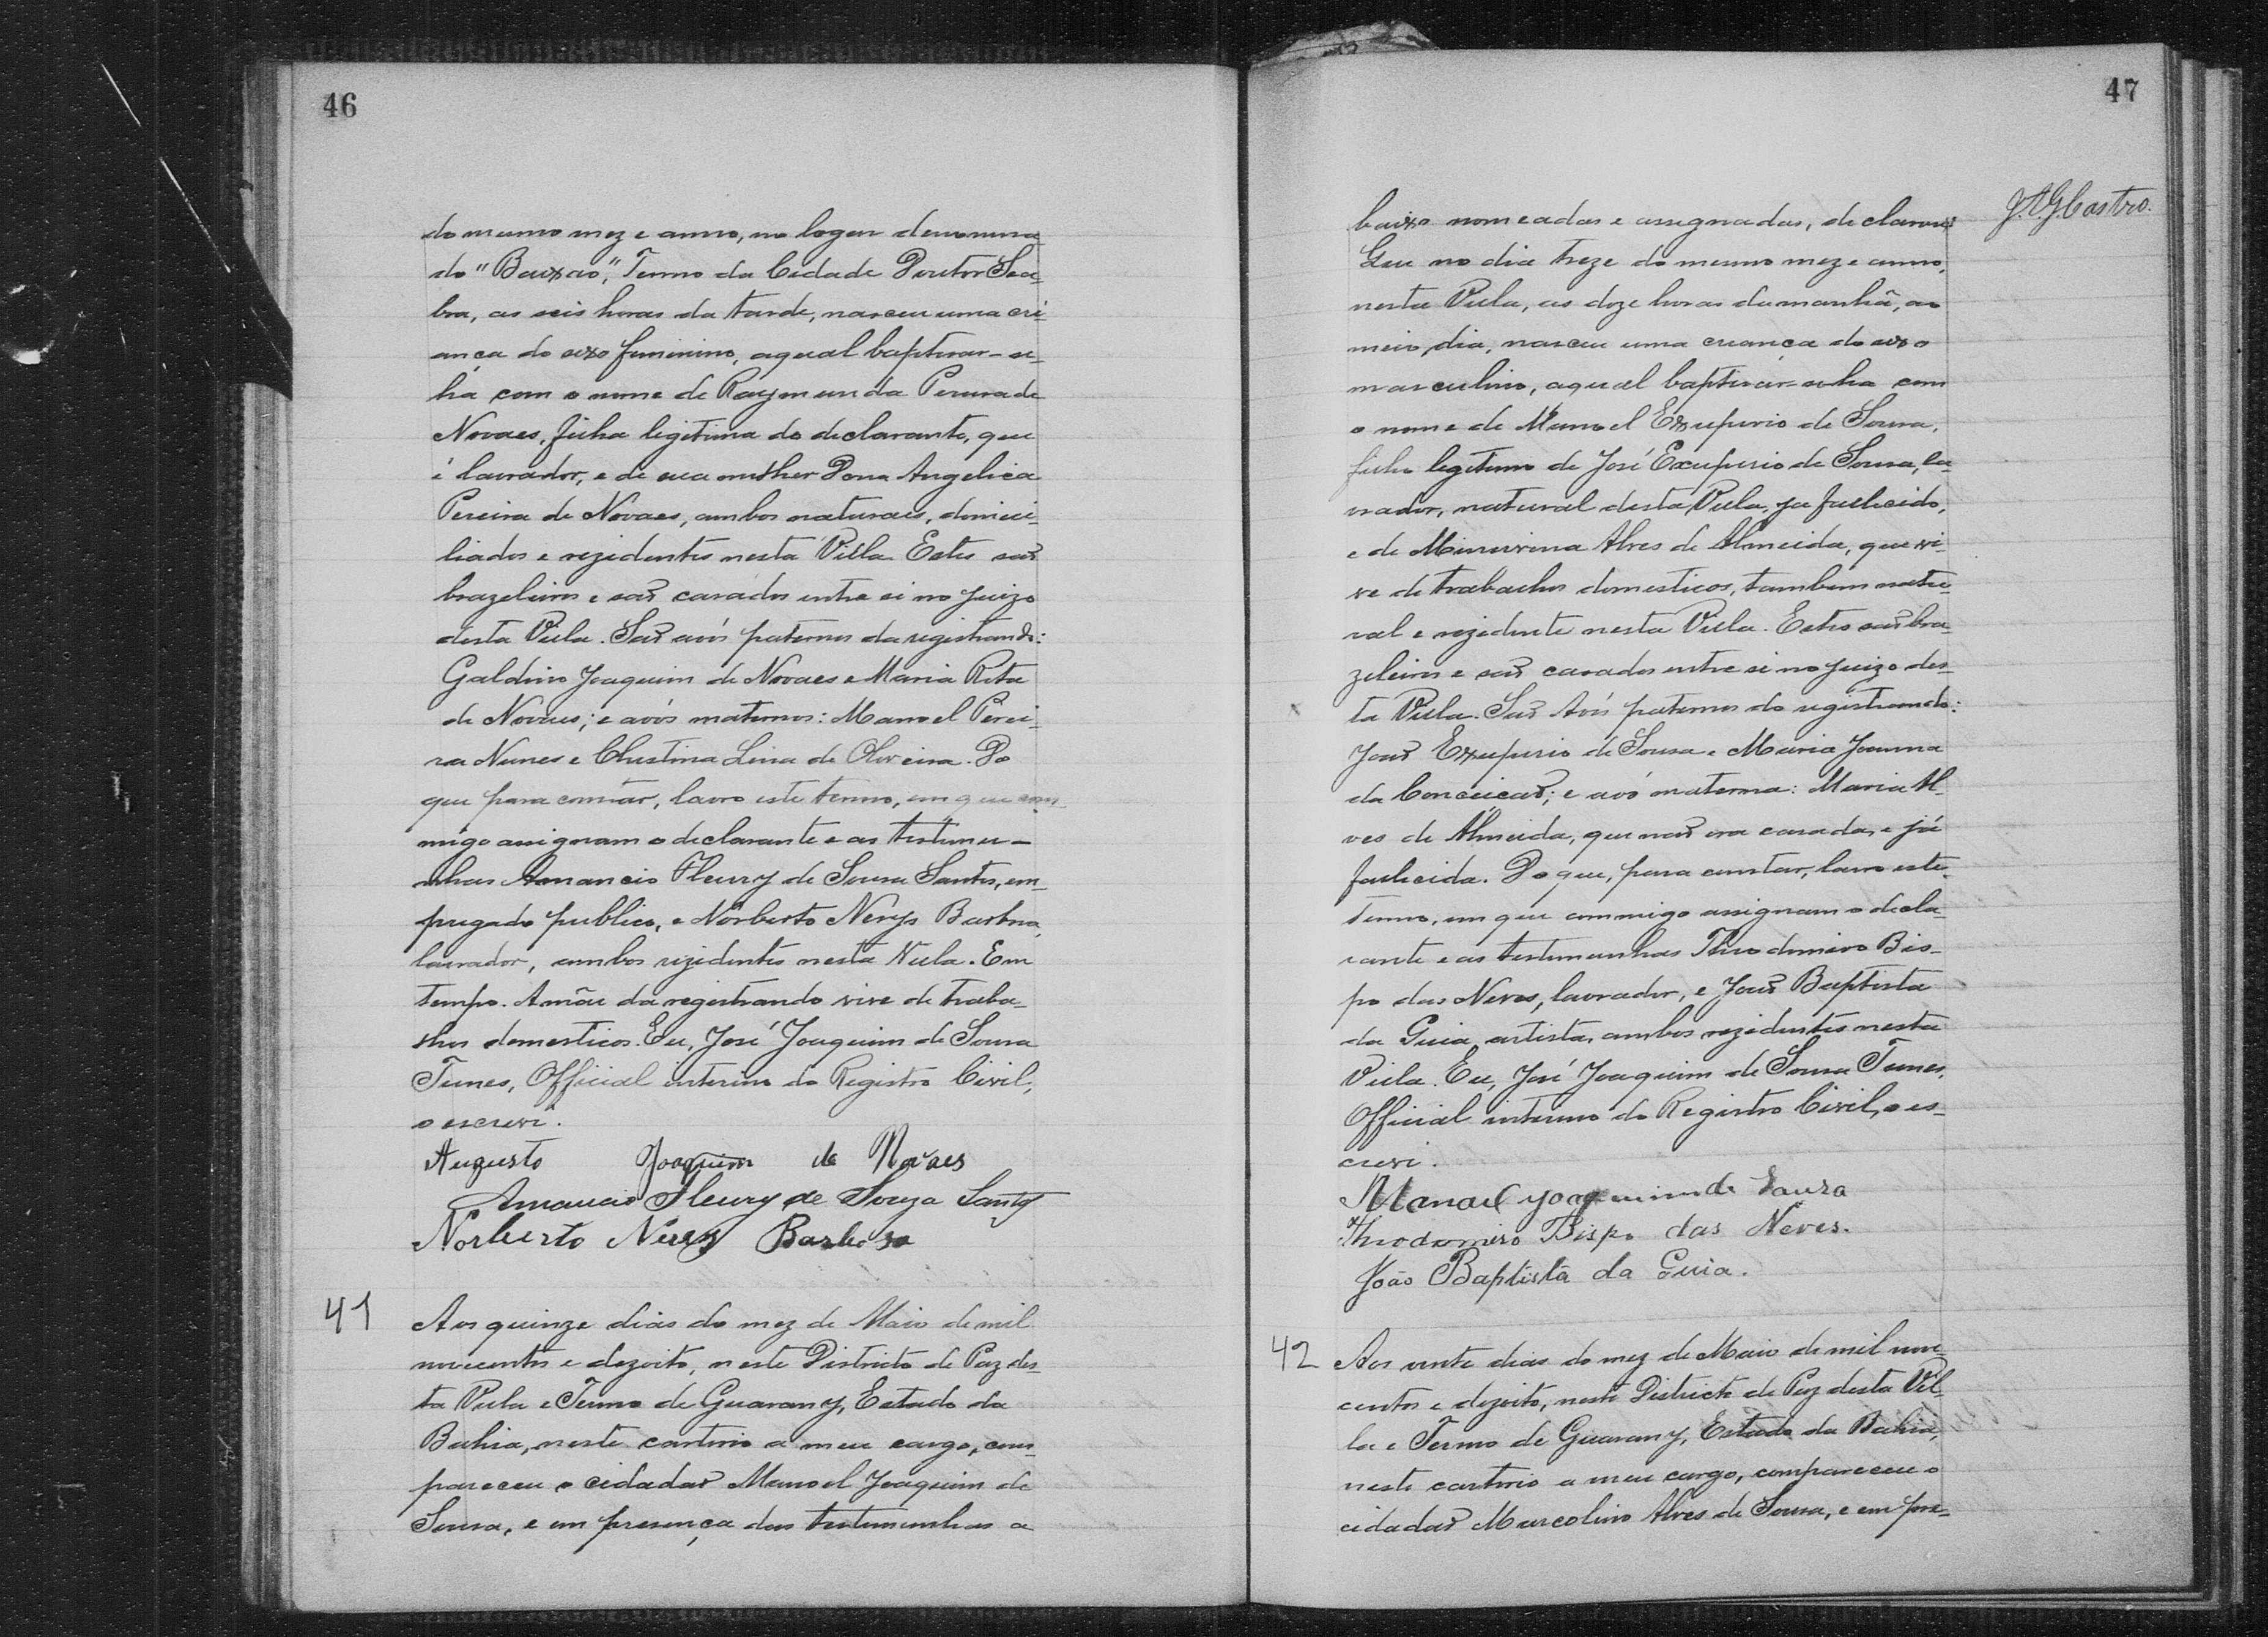 46
do mesmo mez e anno, no logar denomina-
do "Baixão", Termo da Cidade Doutor Sea-
bra, as seis horas da tarde, nasceu uma cri-
ança do sexo feminino, aqual baptisar-se-
ha com o nome de Raymunda Pereira de
Novaes, filha legitima do declarante, que
é lavrador, e de sua mulher Dona Angelica
Pereira de Novaes, ambos naturaes, domici-
liados e rezidentes nesta Villa. Estes saõ
brazeleiros e saõ casados entre si no juizo
desta Villa. Saõ avós paternos da registrando:
Galdino Joaquim de Novaes e Maria Rita
de Novaes; e avós maternos: Manoel Perei-
ra Nunes e Christina Lina de Oliveira. Do
que para constar, lavro este termo, em que com-
migo assignam o declarante e as testemu-
nhas Amancio Fleury de Sousa Santos, em-
pregado publico, e Norberto Nerys Barbosa,
lavrador, ambos rezidentes nesta Villa. Em
tempo. A mãe da registrando vive de traba-
lhos domesticos. Eu, José Joaquim de Sousa
Tunes, Official interino do Registro Civil,
o escrevi.
Augusto Joaquim de Novaes
Amancio Fleury de Souza Santos
Norberto Nerys Barbosa
41
Aos quinze dias do mez de Maio de mil
novecentos e dezoito, neste Districto de Paz des-
ta Villa e Termo de Guarany, Estado da
Bahia, neste cartorio a meu cargo, com-
pareceu o cidadaõ Manoel Joaquim de
Sousa, e em presença das testemunhas a
47
J.A.G.Castro.
baixo nomeadas e assignadas, declarou
que no dia treze do mesmo mez e anno,
nesta Villa, as doze horas da manhã, ao
meio dia, nasceu uma criança do sexo
masculino, aqual baptisar-se-ha com
o nome de Manoel Exuperio de Sousa,
filho legitimo de José Exuperio de Sousa, la-
vrador, natural desta Villa, ja fallecido,
e de Minervina Alves de Almeida, que vi-
ve de trabalhos domesticos, tambem natu-
ral e rezidente nesta Villa. Estes saõ bra-
zeleiros e saõ casados entre si no juizo des-
ta Villa. Saõ Avós paternos do registrando:
Joaõ Exuperio de Sousa e Maria Joanna
da Conceiçaõ; e avó materna: Maria Al-
ves de Almeida, que naõ era casada, e já
fallecida. Do que, para constar, lavro este
termo, em que commigo assignam o decla-
rante e as testemunhas Theodomiro Bis-
po das Neves, lavrador, e Joaõ Baptista
da Guia, artista, ambos rezidentes nesta
Villa. Eu, José Joaquim de Sousa Tunes,
Official interino do Registro Civil, o es-
crevi.
Manoel Joaquim de Souza
Theodomiro Bispo das Neves.
João Baptista da Guia.
42
Aos vinte dias do mez de Maio de mil nove-
centos e dezoito, neste Districto de Paz desta Vil-
la e Termo de Guarany, Estado da Bahia,
neste cartorio a meu cargo, compareceu o
cidadaõ Marcolino Alves de Sousa, e em pre-